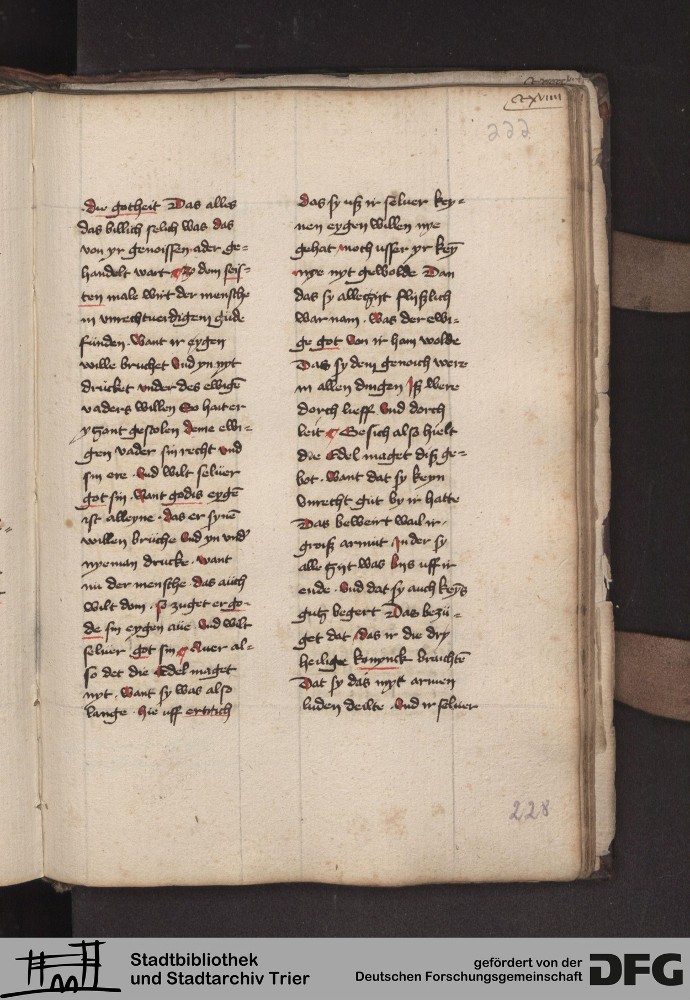 ccxviiii
222
die gotheit Das alles
das billich selich was das
von yr genoissen ader ge-
handelt wart Zo dem seis-
ten male wirt der mensche
in vnrechtuerdigem gude
funden. Want ir eygen
wille bruchet Vnd yn nyt
drücket vnder des ewigē
vaders willen So hait er
yzont gestolen deme ewi-
gen vader sin recht vnd
sin ere. Vnd wilt seluer
got sin. Want godis eygē
ist alleyne. das er synē
willen bruche Vnd yn vnd'
nyeman drucke. want
nu der mensche das auch
wilt dom. so zuget er go-
de sin eygen aue. Vnd wilt
seluer got sin Auer al-
so det die Edel maget
nyt. Want sy was also
lange. hie uff ertrich
das sy uß ir seluer key-
nen eygen willen nye
gehat. noch usser yr keȳ
nye nyt gewolde Dan
das sy allezijt flißlich
war nam. Was der ewi-
ge got von ir han wolde
Das sy dem genoich were
in allen dingen Iß were
dorch lieff. Vnd dorch
leit Se sich also hielt
die Edel maget diß ge-
bot. Want dat sy keyn
vnrecht gut by ir hatte
Das beweirt wail ir
groiß armut. In der sy
alle zijt was bis uff ir
ende. Vnd dat sy auch keȳs
gutz begert Das bezu-
get dat. das ir die dry
heilige konynck brachtē
Dat sy das myt armen
luden deilte. Vnd ir seluer
228
Stadtbibliothek
und Stadtarchiv Trier
gefördert von der
Deutschen Forschungsgemeinschaft
DFG